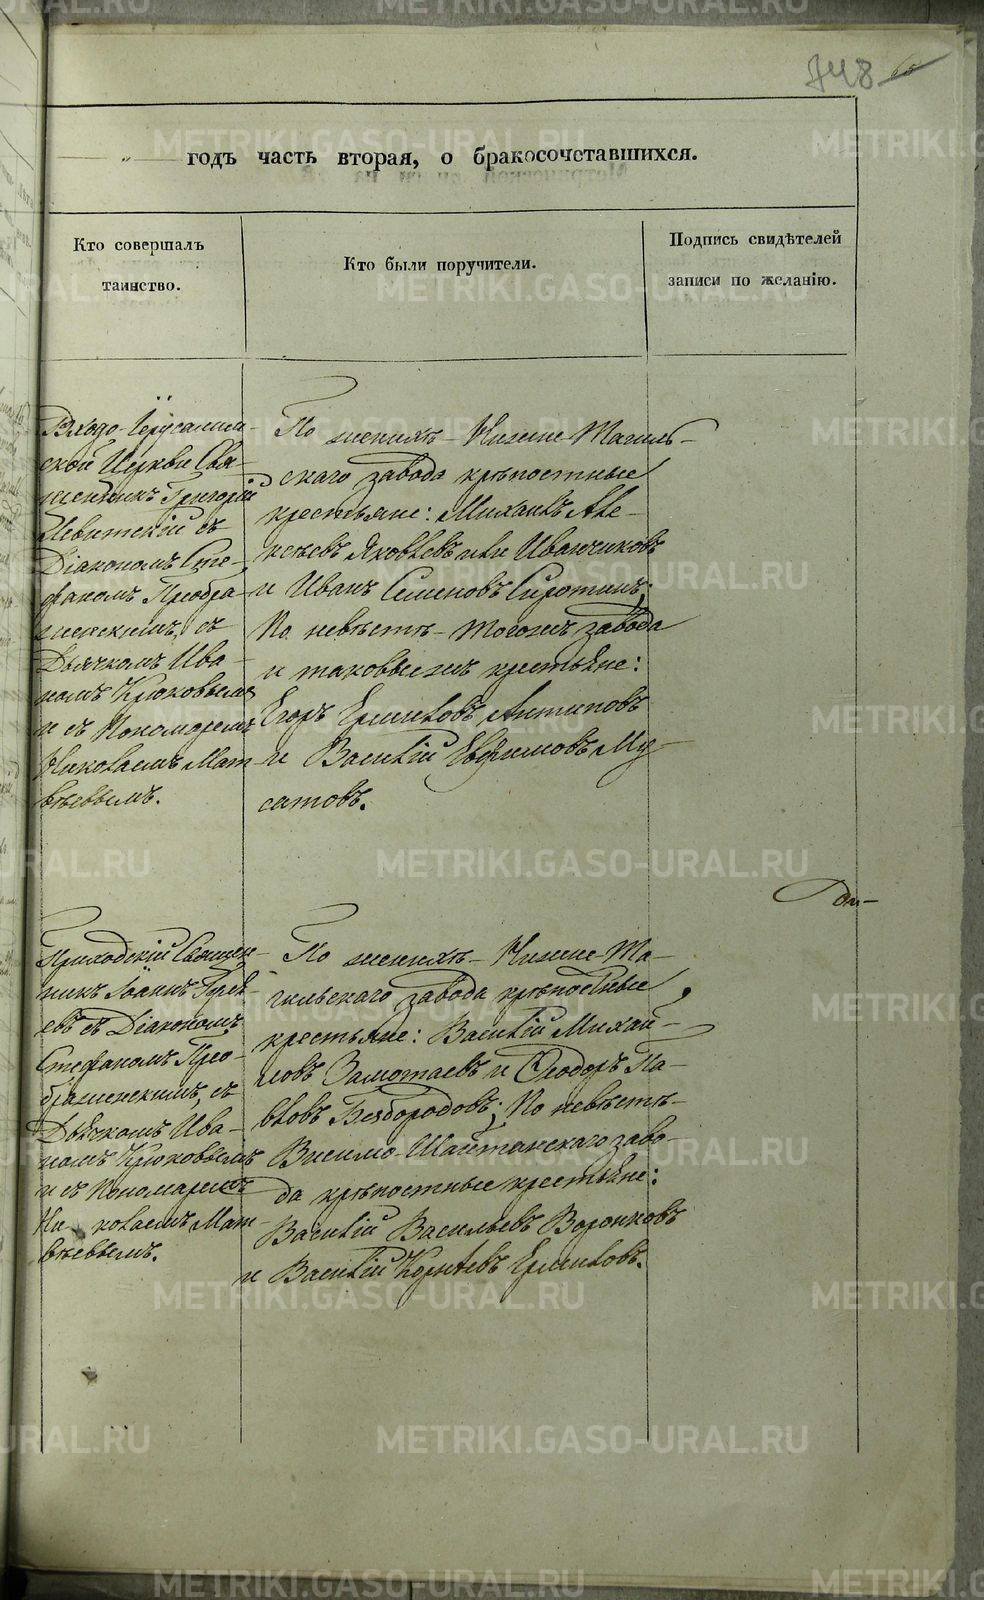 748
годъ часть вторая, о бракосочетавшихся.
Кто совершалъ
таинство.
Кто были поручители.
Подпись свидѣтелей
записи по желанію.
Входо-Іерусалим-
ской Церкви Свя-
щенникъ Григорій
Левитскій съ
Діакономъ Сте-
фаномъ Преобра-
женскимъ, съ
Дьячкомъ Ива-
номъ Крюковымъ
и съ Пономаремъ
Николаемъ Мат-
вѣевымъ.
По женихѣ - Нижне-Тагиль-
скаго завода крѣпостные
крестьяне: Михаилъ Але-
ксѣевъ Яковлевъ или Иванчиковъ
и Иванъ Семеновъ Сиротинъ;
По невѣстѣ - тогожъ завода
и таковыежъ крестьяне:
Егоръ Ермиловъ Антиповъ
и Василій Евфимовъ Му-
сатовъ.
Приходскій Священ-
никъ Іоаннъ
съ Діакономъ
Стефаномъ Прео-
браженскимъ, съ
Дьячкомъ Ива-
номъ Крюковымъ
и съ Пономаремъ
Николаемъ Мат-
вѣевымъ.
По женихѣ - Нижне-Та-
гильскаго завода крѣпостные
крестьяне: Василій Михай-
ловъ Замотаевъ и Ѳеодоръ Па-
вловъ Безбородовъ; По невѣстѣ -
Висимо-Шайтанскаго заво-
да крѣпостные крестьяне:
Василій Васильевъ Воронковъ
и Василій Корнѣевъ Ермиловъ.
METRIKI.GASO-URAL.RU